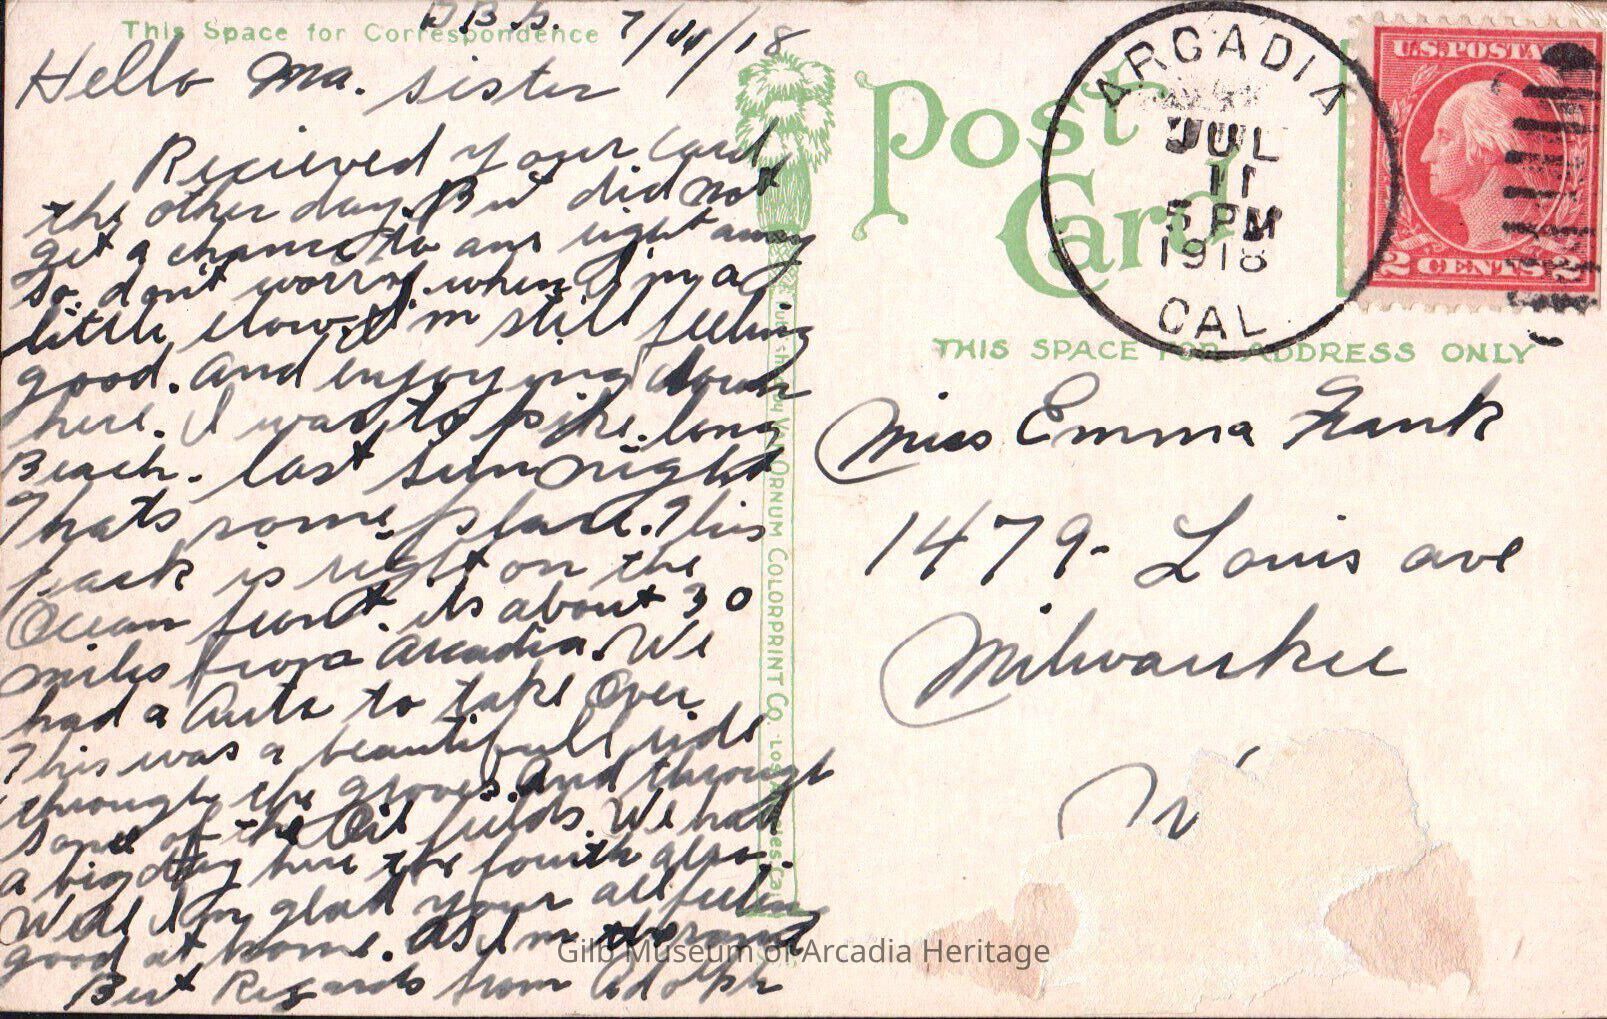 This Space for Correspondence
7/11/18
Hello Ma. sister
Recieved your card
the other day. But did not
get a chance to ans right away
so. don't worry. when I'm a
little slow. I'm still feeling
good. And enjoying down
here. I was to pike. long
Beach. last sun night
Thats some place. This
park is right on the
Ocean funt. its about 30
miles from Arcadia. We
had a Auto to take Over
This was a beautifull ride
through the groves. And through
some of the Oil fields. We had
a big day here the fourth also.
Well I'm glad your all feeling
good at home. As I'm the same
Best Regards from Adolph
Post Card
ARCADIA
JUL
11
5 PM
1918
CAL.
U.S. POSTAGE
2 CENTS 2
THIS SPACE FOR ADDRESS ONLY
Miss Emma Frank
1479- Louis ave
Milwaukee
Wi
Published by Van Ornum Colorprint Co. Los Angeles Cal
Gilb Museum of Arcadia Heritage